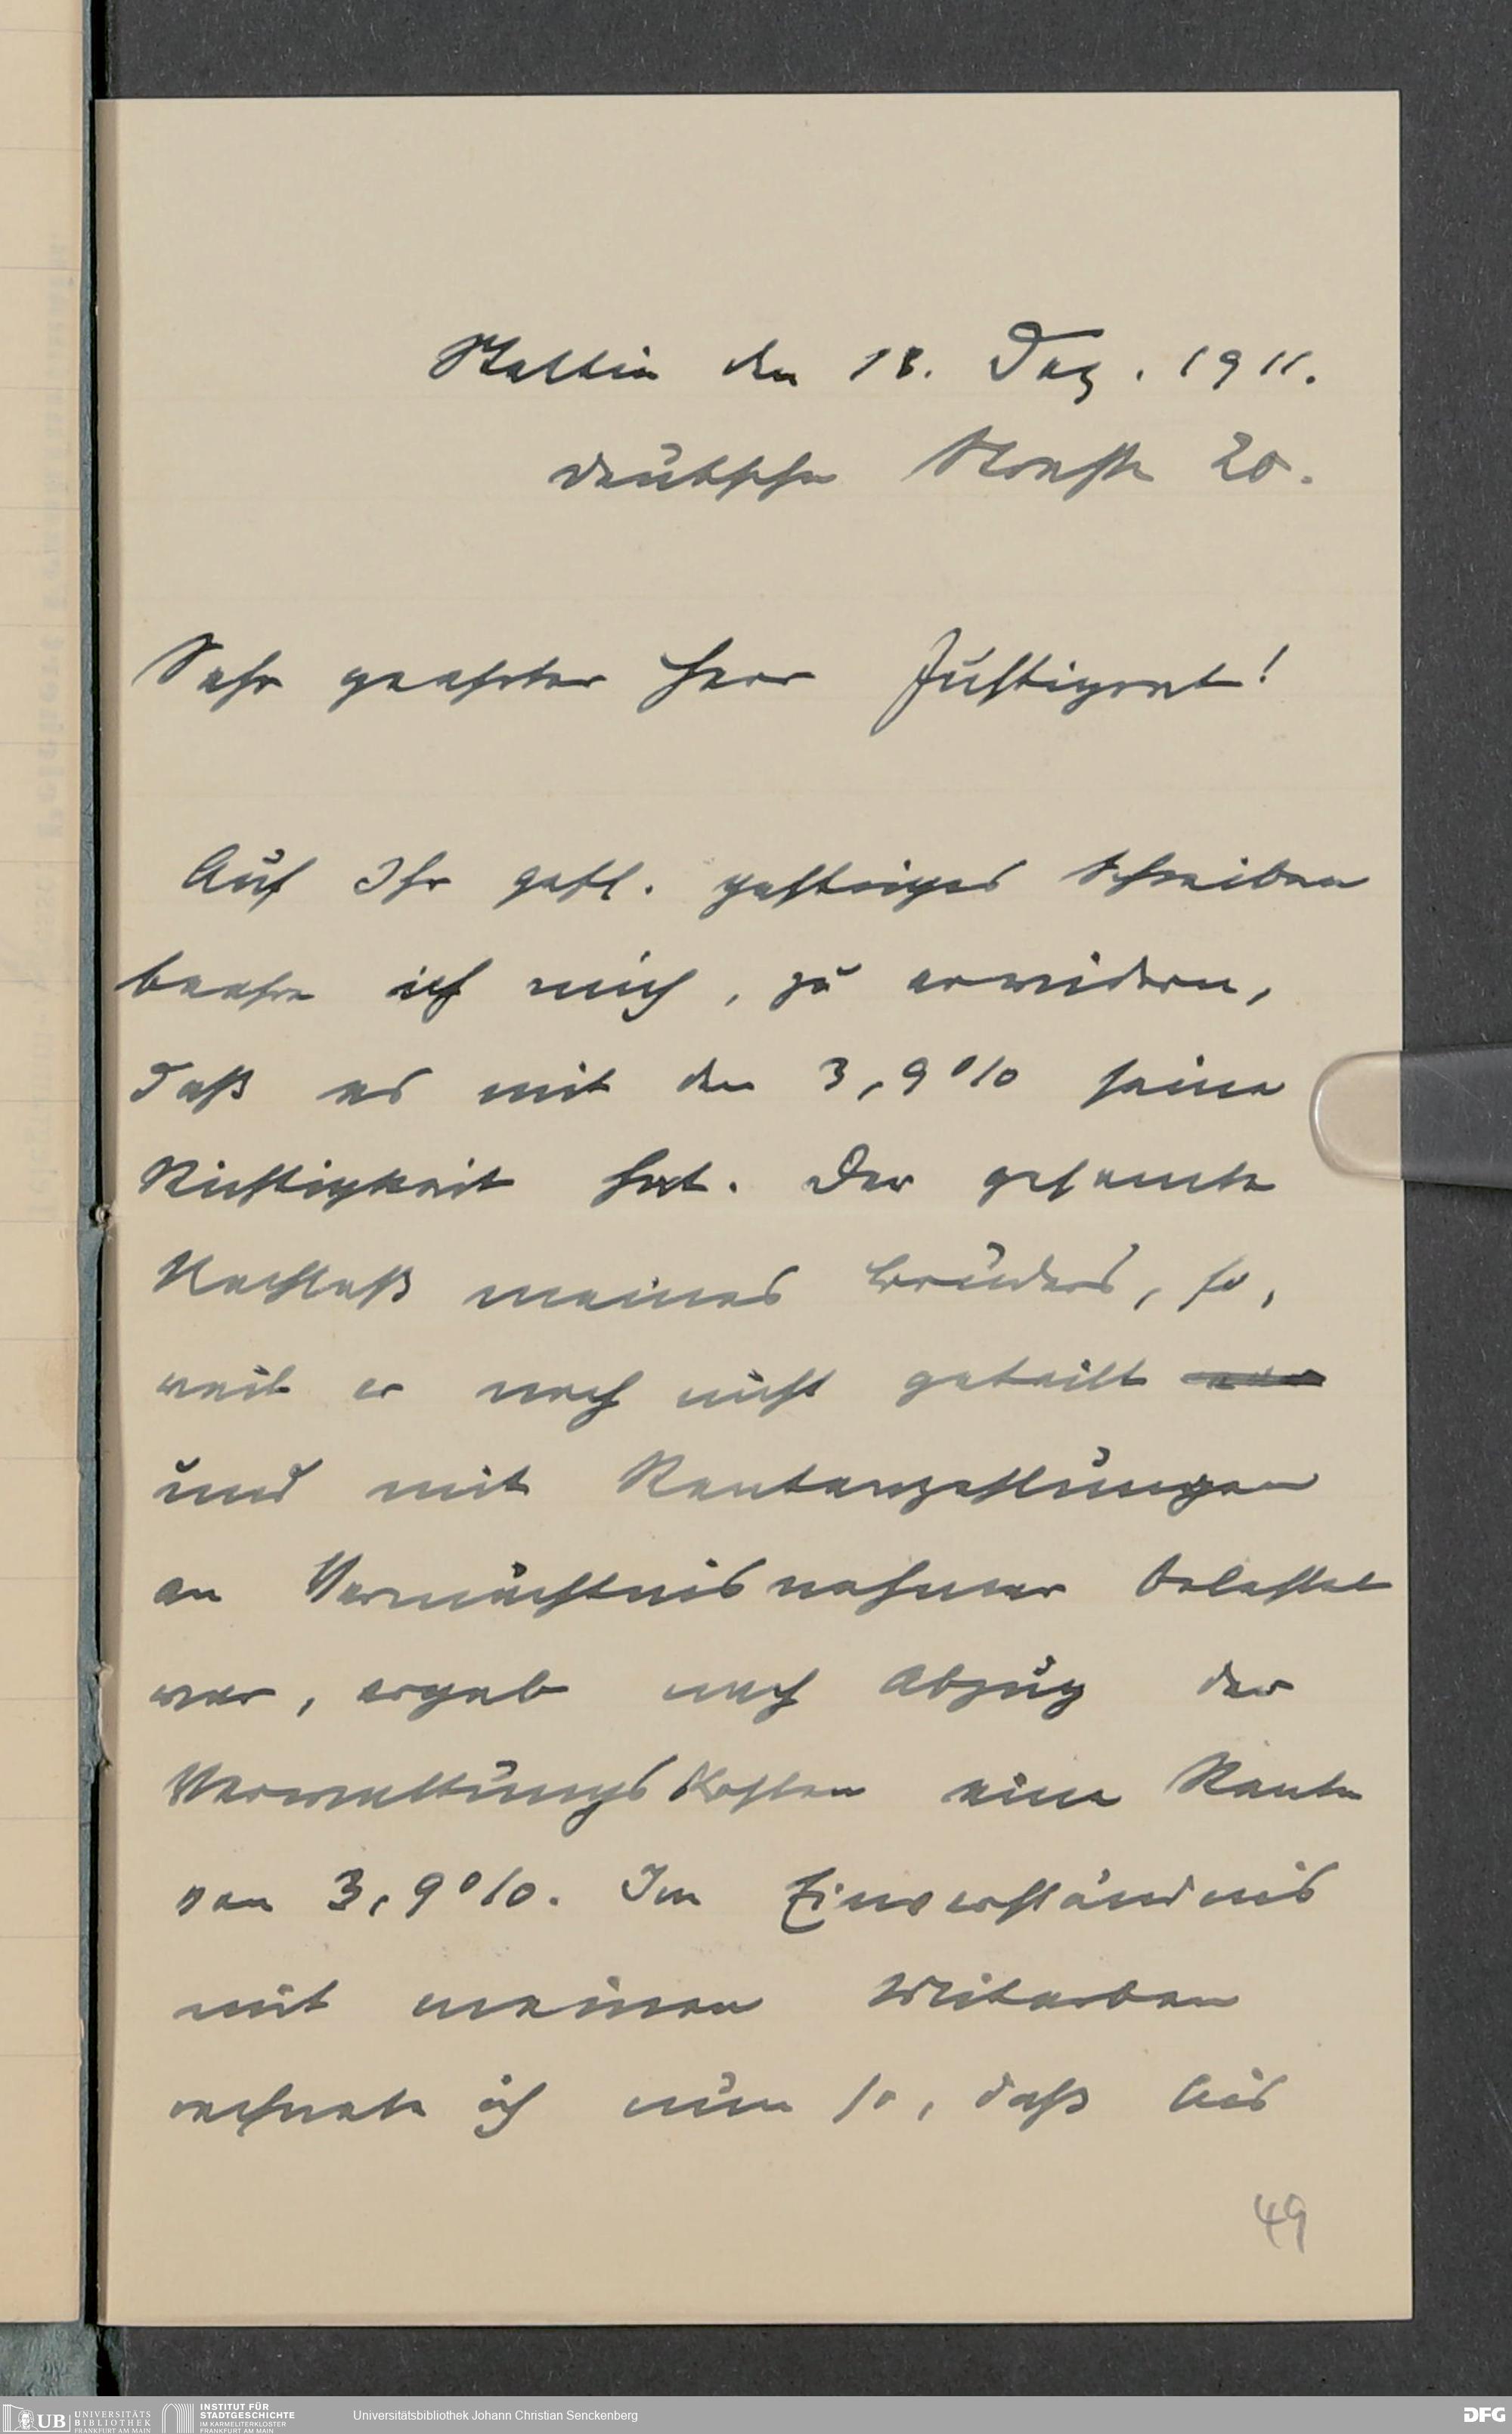 Stettin den 18. Dez. 1911.
Deutsche Straße 20.
Sehr geehrter Herr Justizrat!
Auf Ihr gefl. gestriges Schreiben
beehre ich mich, zu erwidern,
daß es mit den 3,9% seine
Richtigkeit hat. Der gesamte
Nachlaß meines Bruders, so,
weil er noch nicht geteilt war
und mit Rentenzahlungen
an Vermächtnisnehmer belastet
war, ergab nach Abzug der
Verwaltungskosten eine Rente
von 3,9%. Im Einverständnis
mit meinen Miterben
rechnete ich nun so, daß bis
49
UB UNIVERSITÄTS
BIBLIOTHEK
FRANKFURT AM MAIN
INSTITUT FÜR
STADTGESCHICHTE
IM KARMELITERKLOSTER
FRANKFURT AM MAIN
Universitätsbibliothek Johann Christian Senckenberg
DFG